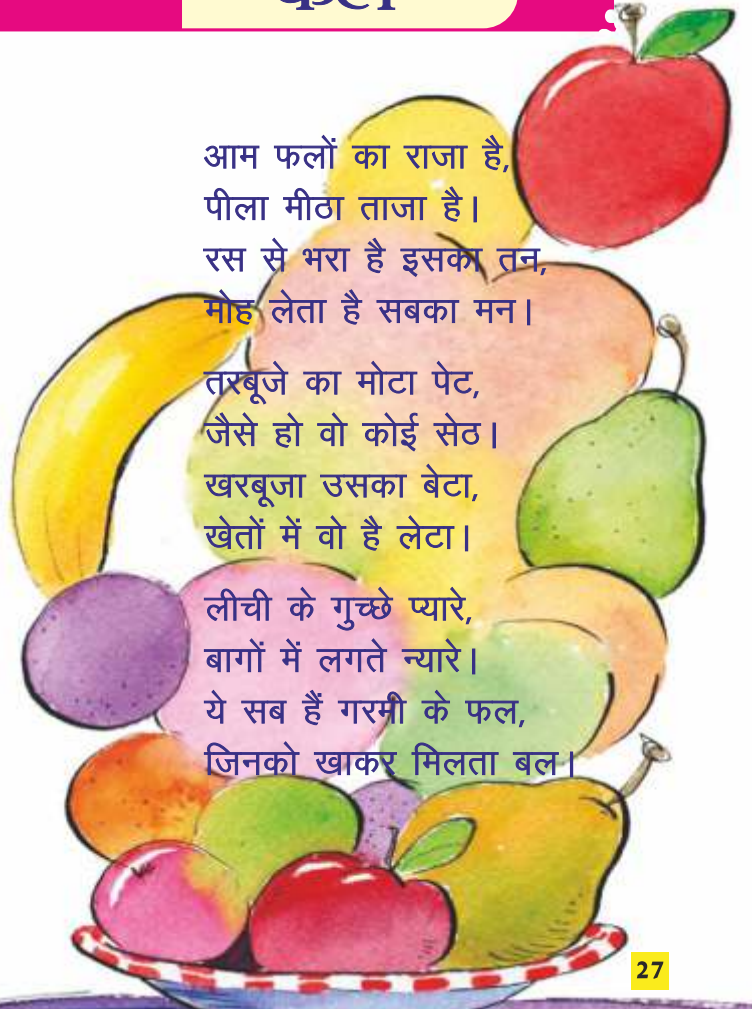 आम फलों का राजा है,
पीला मीठा ताजा है।
रस से भरा है इसका तन,
मोह लेता है सबका मन।
तरबूजे का मोटा पेट,
जैसे हो वो कोई सेठ।
खरबूजा उसका बेटा,
खेतों में वो है लेटा।
लीची के गुच्छे प्यारे,
बागों में लगते न्यारे।
ये सब हैं गरमी के फल,
जिनको खाकर मिलता बल।
27